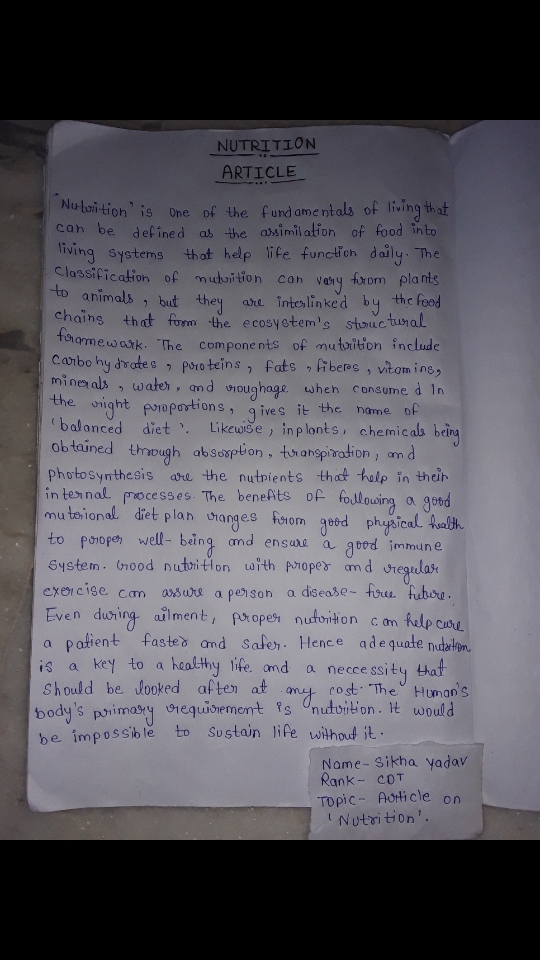 NUTRITION
ARTICLE
"Nutrition" is one of the fundamentals of living that
can be defined as the assimilation of food into
living systems that help life function daily. The
classification of nutrition can vary from plants
to animals, but they are interlinked by the food
chains that form the ecosystem's structural
framework. The components of nutrition include
carbohydrates, proteins, fats, fibers, vitamins,
minerals, water, and roughage when consumed In
the right proportions, gives it the name of
'balanced diet'. Likewise, in plants, chemicals being
obtained through absorption, transpiration, and
photosynthesis are the nutrients that help in their
internal processes. The benefits of following a good
nutrional diet plan ranges from good physical health
to proper well-being and ensure a good immune
system. Good nutrition with proper and regular
exercise can assure a person a disease-free future.
Even during ailment, proper nutrition can help cure
a patient faster and safer. Hence adequate nutrition
is a key to a healthy life and a neccessity that
should be looked after at any cost. The Human's
body's primary requirement is nutrition. It would
be impossible to sustain life without it.
Name- Sikha yadav
Rank- CDT
Topic- Article on
'Nutrition'.